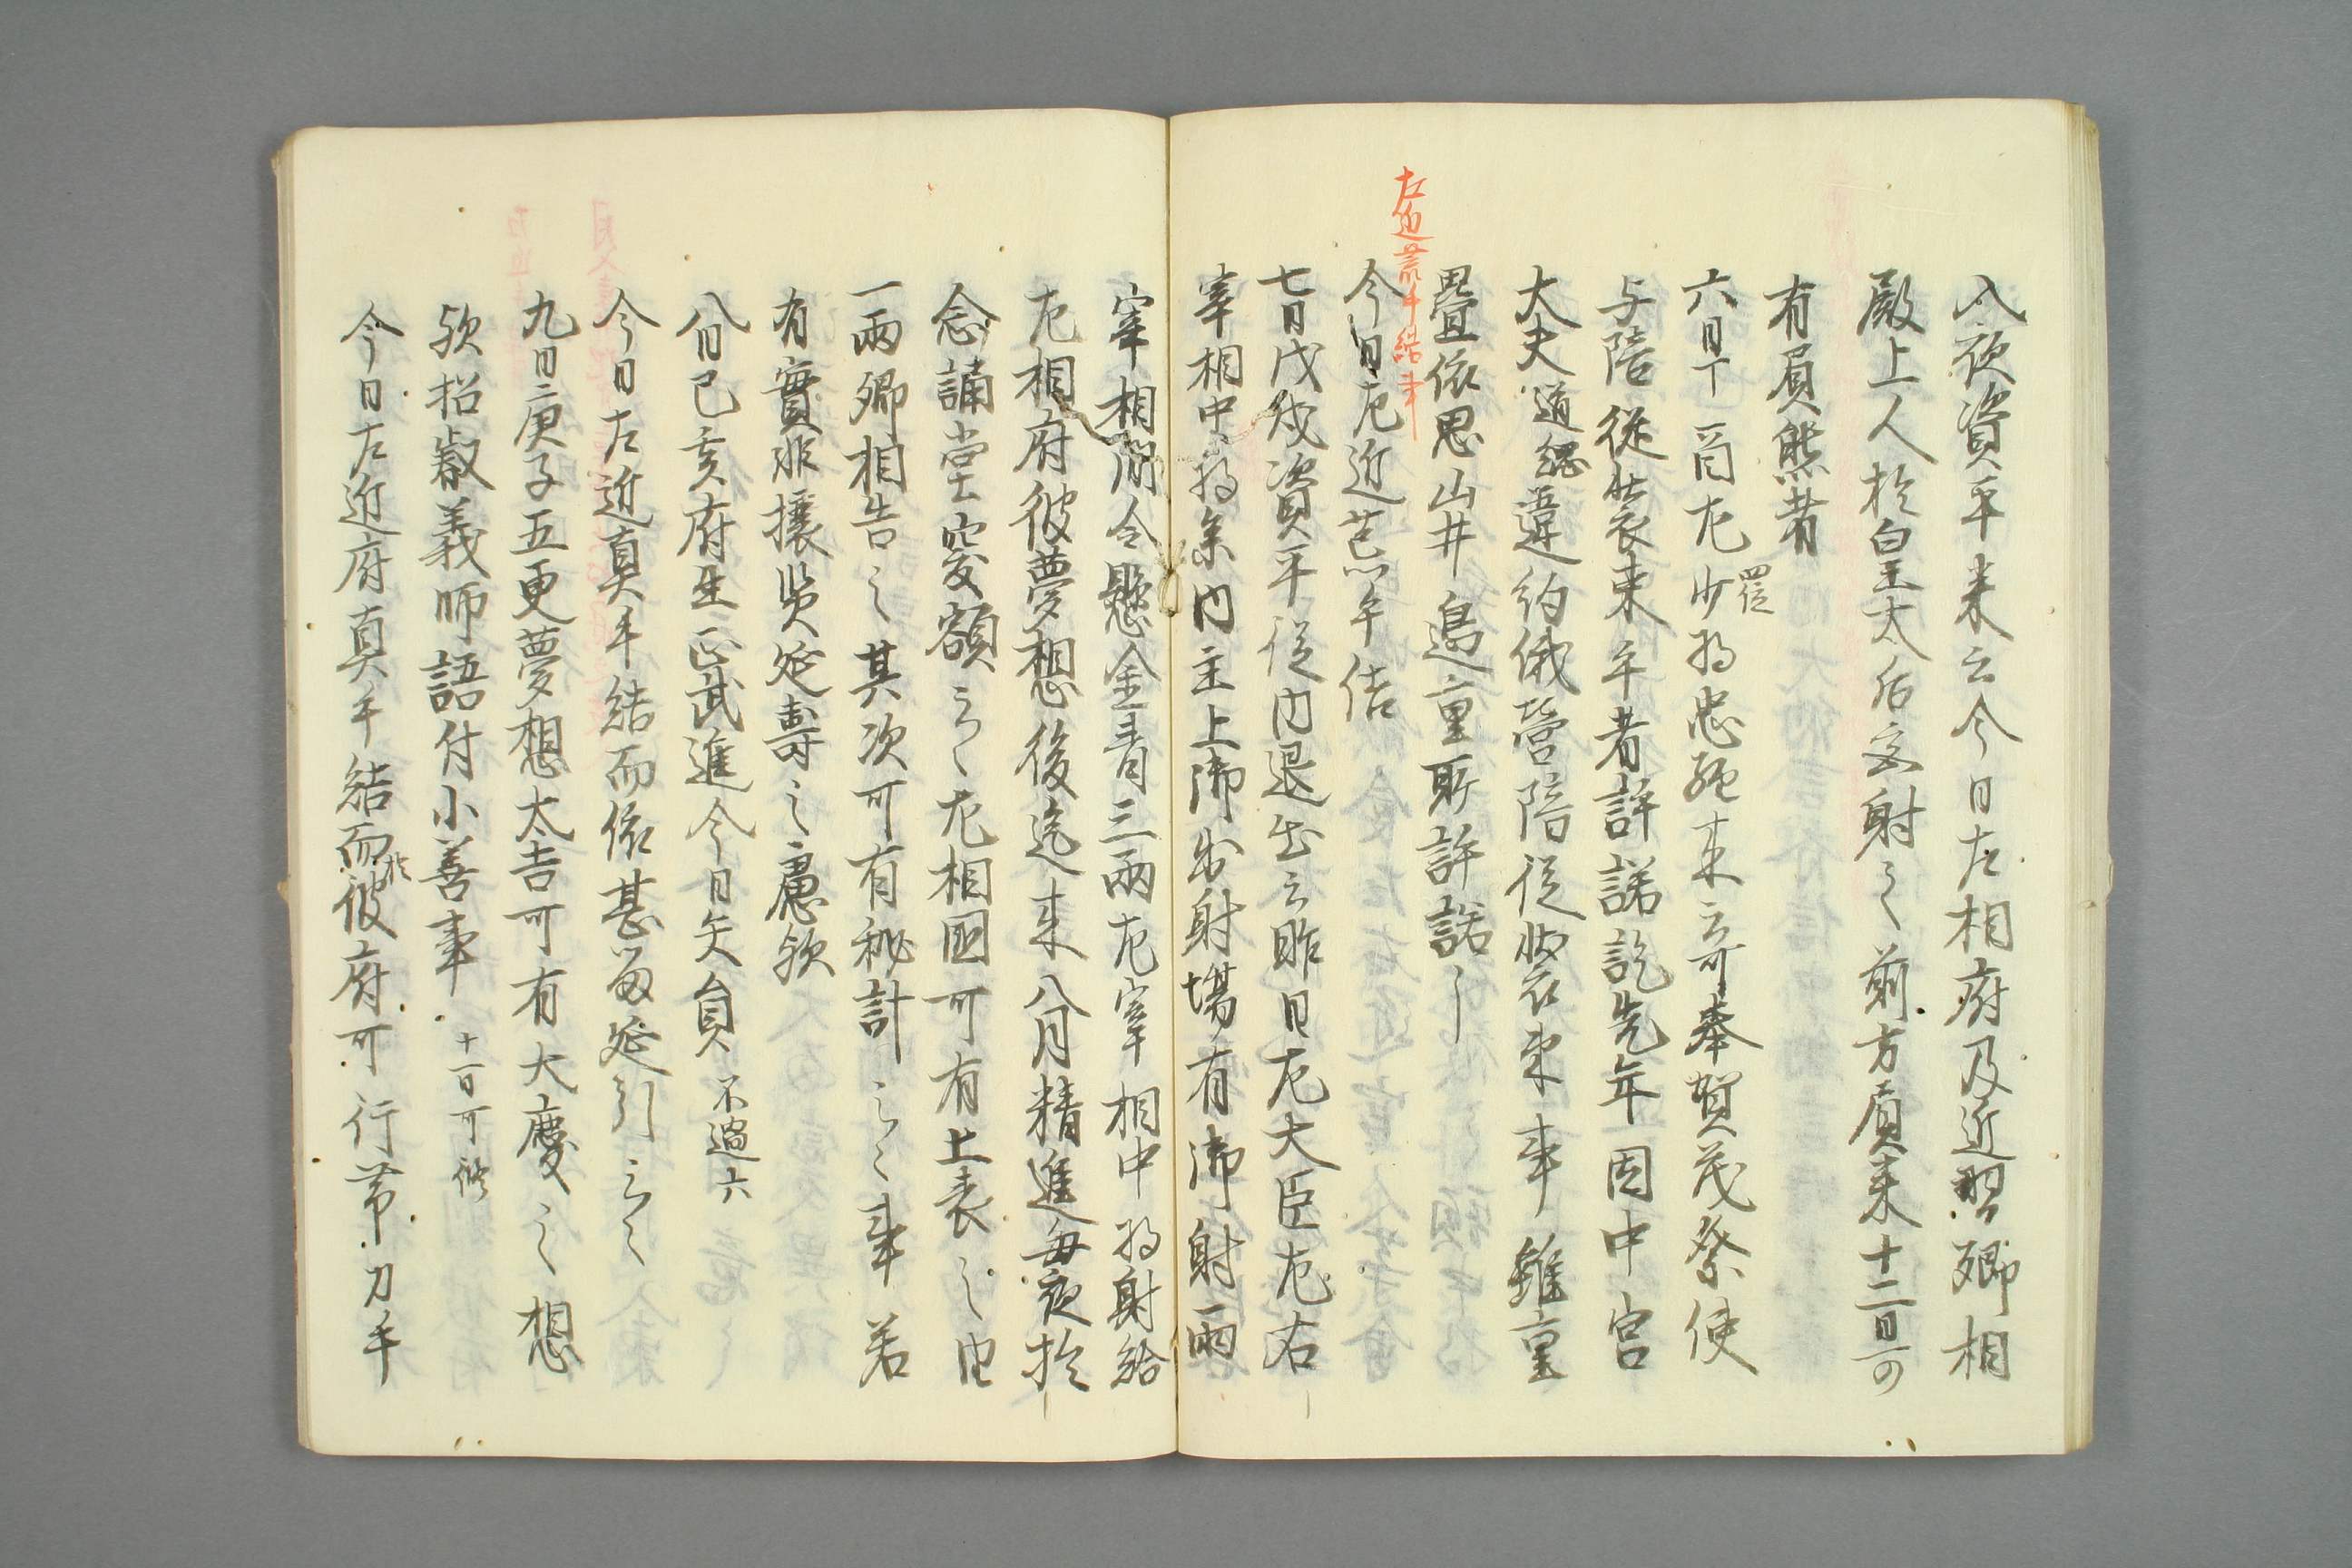 入夜資平来云今日左相府及近習卿相
殿上人於皇太后宮射之前方負来十二日可
有負態者
六日丁酉左少将忠経四位来云可奉賀茂祭使
与陪従装束乎者許諾訖先年因中宮
大夫道綱違約俄営陪従装束事雖重
畳依思山井嶋重所許諾了
左近荒手結事
今日左近荒手結
七日戊戌資平従内退出云昨日左大臣左右
宰相中将参内主上御出射場有御射両
宰相間令懸金青三両左宰相中将射給
左相府彼夢想後迄来八月精進毎夜於
念誦堂突額云々左相国可有上表之由
一両卿相告之其次可有秘計云々事若
有實非攘災延壽之慮欤
八日己亥府生正武進今日矢員不過六
今日左近真手結而依甚雨延引云々
九日庚子五更夢想太吉可有大慶之想
欤招叡義師語付小善事十一日可修
今日左近府真手結而於彼府可行帯刀手